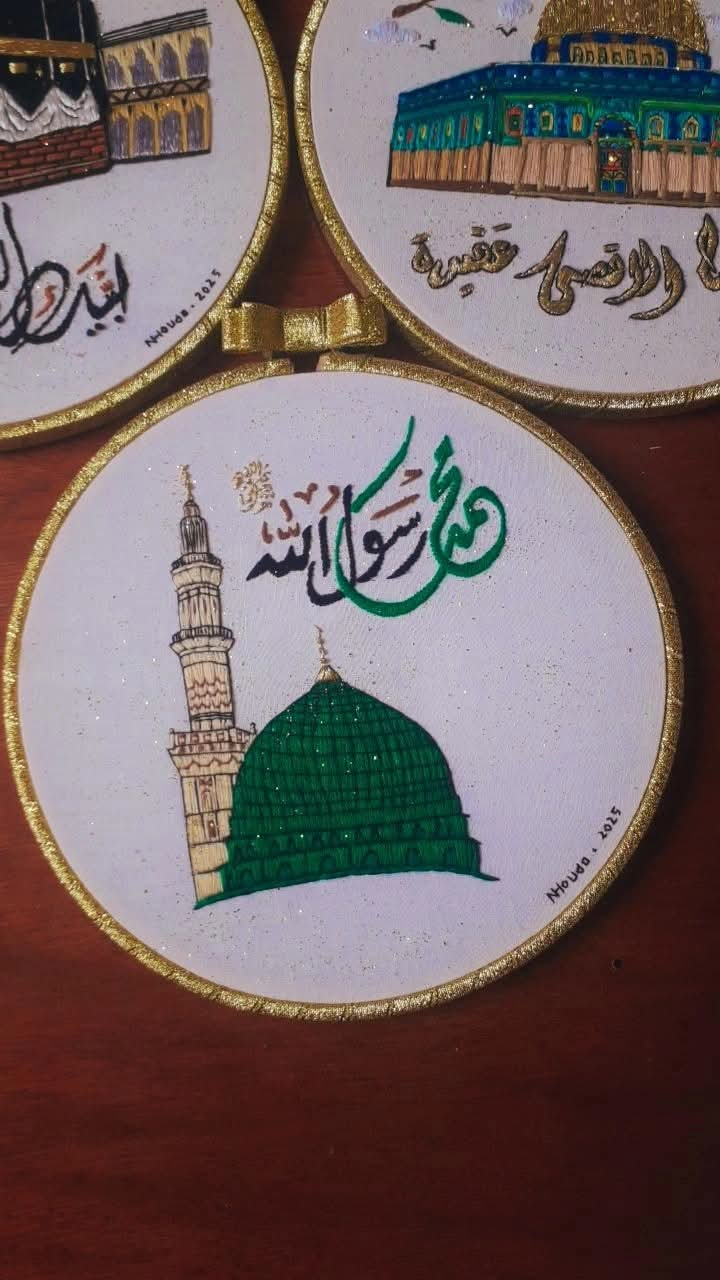 لبيك
NHouda. 2025
الاقصى عقيدة
محمد رسول الله
ﷺ
NHouda. 2025